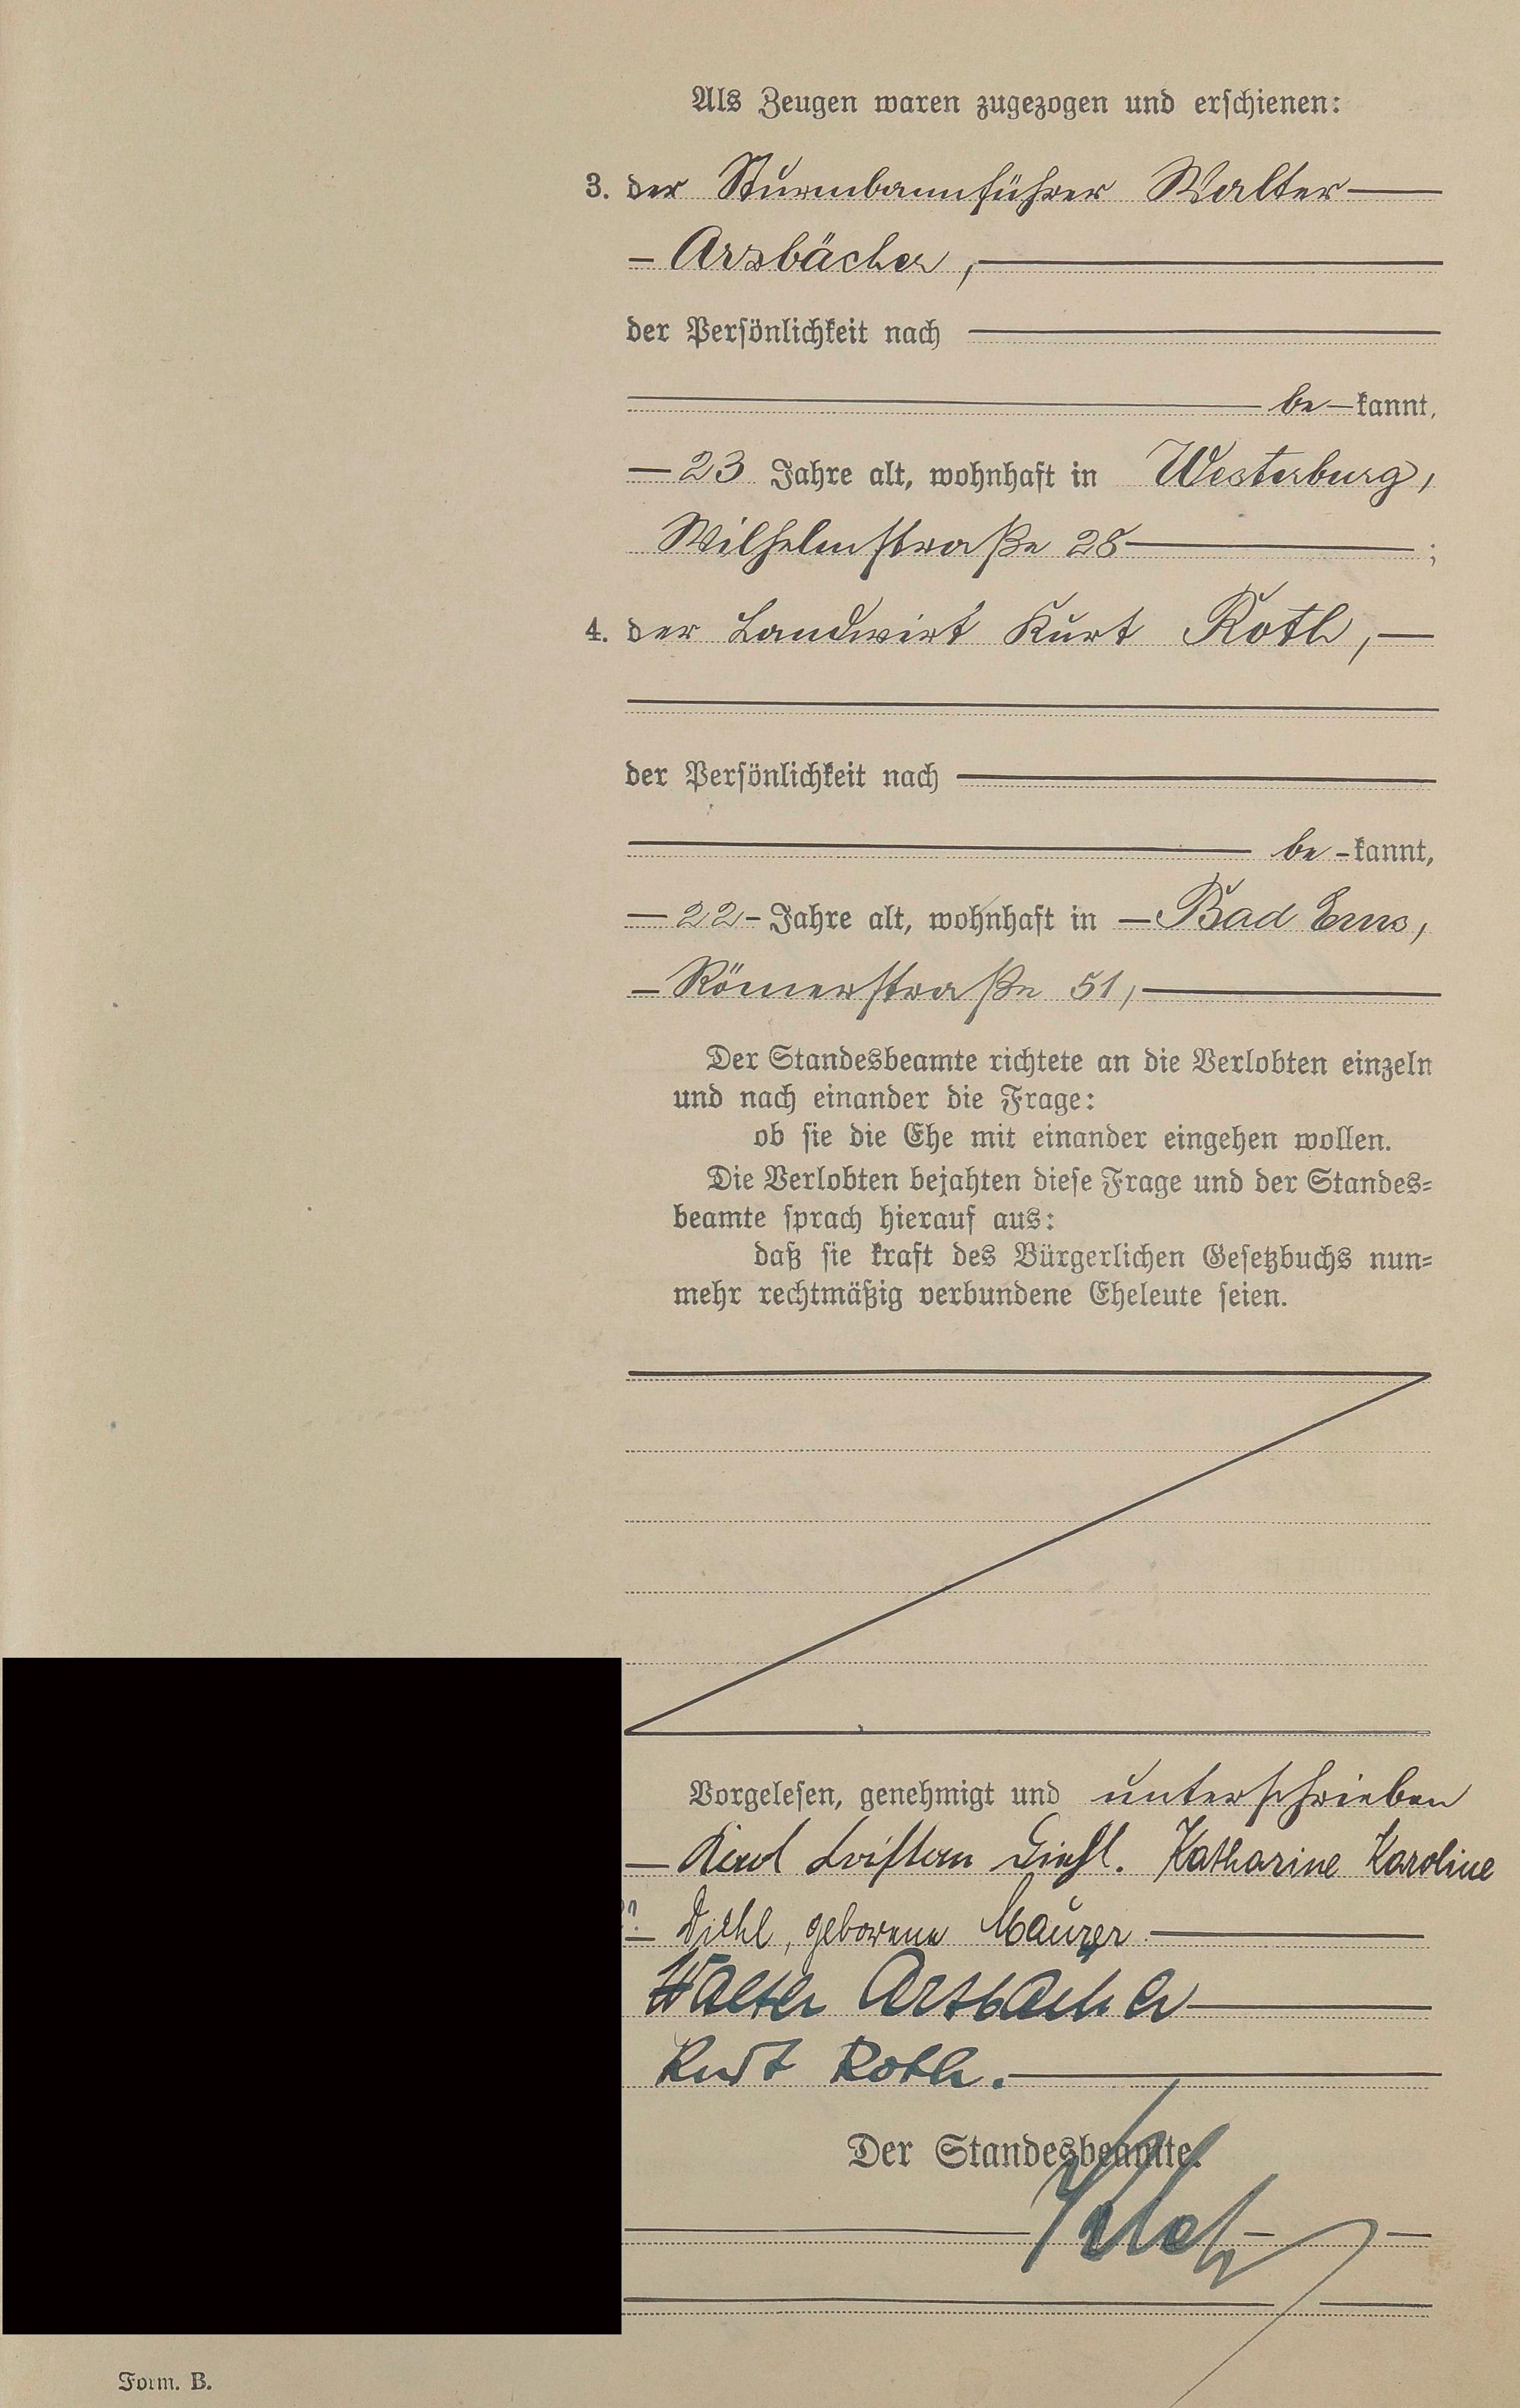 Als Zeugen waren zugezogen und erschienen:
3. der Sturmbannführer Walter
Arzbächer,
der Persönlichkeit nach
be kannt,
23 Jahre alt, wohnhaft in Westerburg,
Wilhelmstraße 28 ;
4. der Landwirt Kurt Roth,
der Persönlichkeit nach
be kannt,
22 Jahre alt, wohnhaft in Bad Ems,
Römerstraße 51,
Der Standesbeamte richtete an die Verlobten einzeln
und nach einander die Frage:
ob sie die Ehe mit einander eingehen wollen.
Die Verlobten bejahten diese Frage und der Standes=
beamte sprach hierauf aus:
daß sie kraft des Bürgerlichen Gesetzbuchs nun=
mehr rechtmäßig verbundene Eheleute seien.
Vorgelesen, genehmigt und unterschrieben
Karl Diehl. Katharine Karoline
Diehl, geborene Maurer
Walter Arzbächer
Kurt Roth.
Der Standesbeamte.
Form. B.